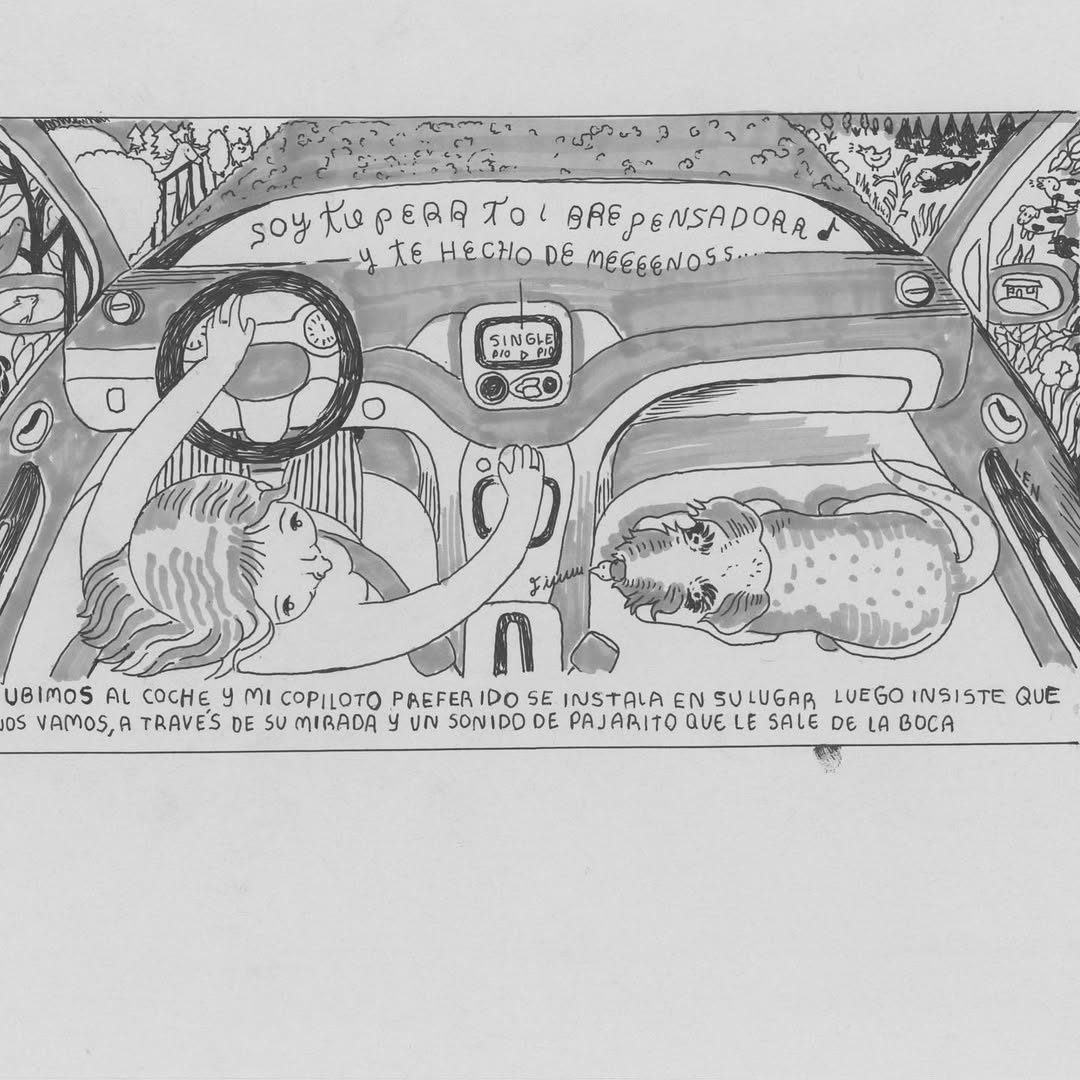 SOY TU PERRITO ARREPENSADORR♪
Y TE HECHO DE MEEEENOSS...
SINGLE
PIO ▷ PIO
Fiuuu
LEN
UBIMOS AL COCHE Y MI COPILOTO PREFERIDO SE INSTALA EN SU LUGAR LUEGO INSISTE QUE
NOS VAMOS, A TRAVÉS DE SU MIRADA Y UN SONIDO DE PAJARITO QUE LE SALE DE LA BOCA